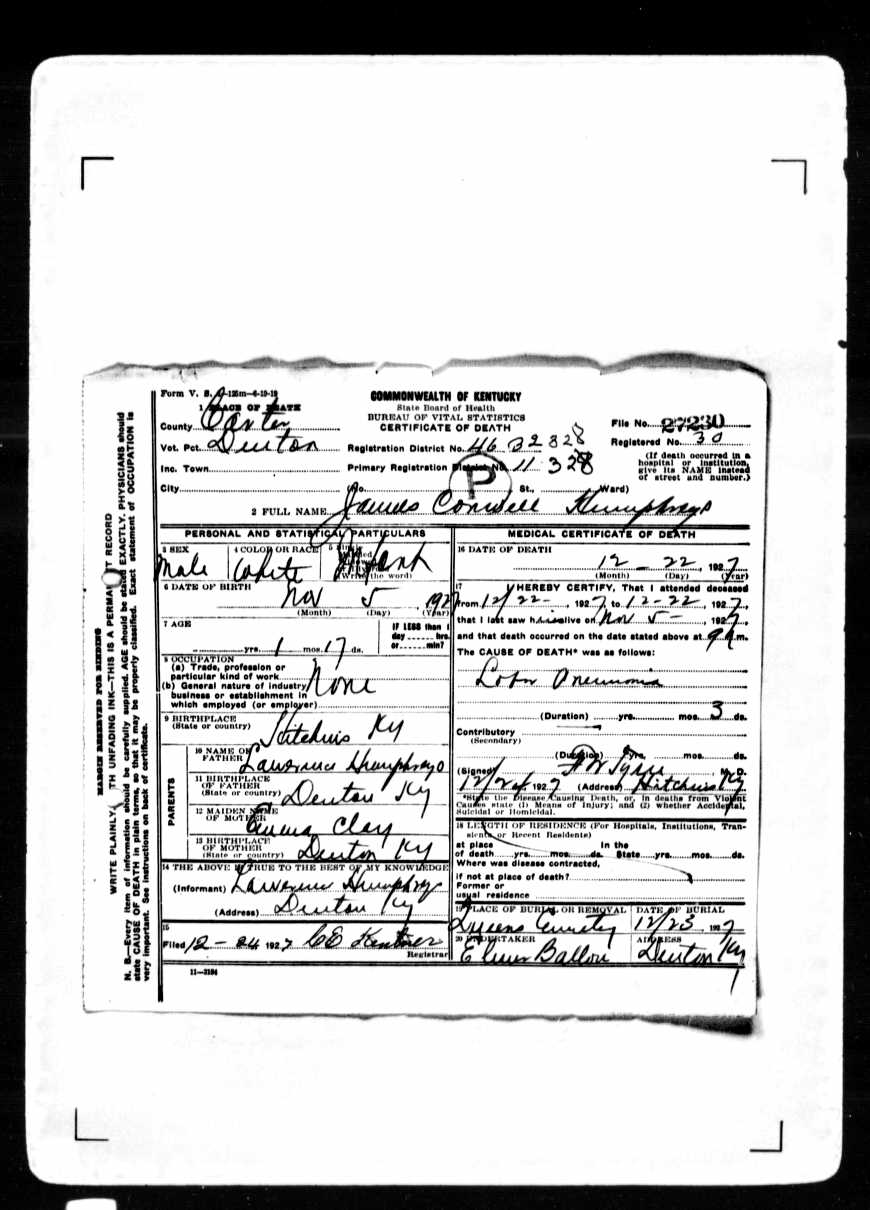 Form V. S. 1-125m-6-19-19
1 PLACE OF DEATH
COMMONWEALTH OF KENTUCKY
State Board of Health
BUREAU OF VITAL STATISTICS
CERTIFICATE OF DEATH
County Carter
Vot. Pct. Denton
Inc. Town
City
Registration District No. 46
Primary Registration District No. 11 328
(No. St., Ward)
P
File No. 27230
Registered No. 30
(If death occurred in a
hospital or institution,
give its NAME instead
of street and number.)
2 FULL NAME James Conwell Humphreys
PERSONAL AND STATISTICAL PARTICULARS
3 SEX
Male
4 COLOR OR RACE
White
5
(Write the word)
Infant
6 DATE OF BIRTH
Nov 5, 1927
(Month) (Day) (Year)
7 AGE
yrs. 1 mos. 17 ds.
IF LESS than 1
day hrs.
or min?
8 OCCUPATION
(a) Trade, profession or
particular kind of work
(b) General nature of industry
business or establishment in
which employed (or employer)
None
9 BIRTHPLACE
(State or country) Hitchins Ky
PARENTS
10 NAME OF
FATHER Lawrence Humphreys
11 BIRTHPLACE
OF FATHER
(State or country) Denton Ky
12 MAIDEN NAME
OF MOTHER Emma Clay
13 BIRTHPLACE
OF MOTHER
(State or country) Denton Ky
14 THE ABOVE IS TRUE TO THE BEST OF MY KNOWLEDGE
(Informant) Lawrence Humphreys
(Address) Denton Ky
15
Filed 12-24 1927
Registrar
11-3184
MEDICAL CERTIFICATE OF DEATH
16 DATE OF DEATH
12 - 22, 1927
(Month) (Day) (Year)
17 I HEREBY CERTIFY, That I attended deceased
from 12/22-, 1927, to 12-22, 1927,
that I last saw him alive on Nov 5-, 1927,
and that death occurred on the date stated above at 9 m.
The CAUSE OF DEATH* was as follows:
Lobar Pneumonia
(Duration) yrs. mos. 3 ds.
Contributory
(Secondary)
(Duration) yrs. mos. ds.
(Signed) M. D.
12/24, 1927 (Address) Hitchins Ky
*State the Disease Causing Death, or, in deaths from Violent
Causes state (1) Means of Injury; and (2) whether Accidental,
Suicidal or Homicidal.
18 LENGTH OF RESIDENCE (For Hospitals, Institutions, Tran-
sients or Recent Residents)
at place In the
of death yrs. mos. ds. State yrs. mos. ds.
Where was disease contracted,
if not at place of death?
Former or
usual residence
19 PLACE OF BURIAL OR REMOVAL
DATE OF BURIAL
12/23, 1927
20 UNDERTAKER
ADDRESS
Denton Ky
MARGIN RESERVED FOR BINDING
WRITE PLAINLY, WITH UNFADING INK—THIS IS A PERMANENT RECORD
N. B.—Every item of information should be carefully supplied. AGE should be stated EXACTLY. PHYSICIANS should
state CAUSE OF DEATH in plain terms, so that it may be properly classified. Exact statement of OCCUPATION is
very important. See instructions on back of certificate.